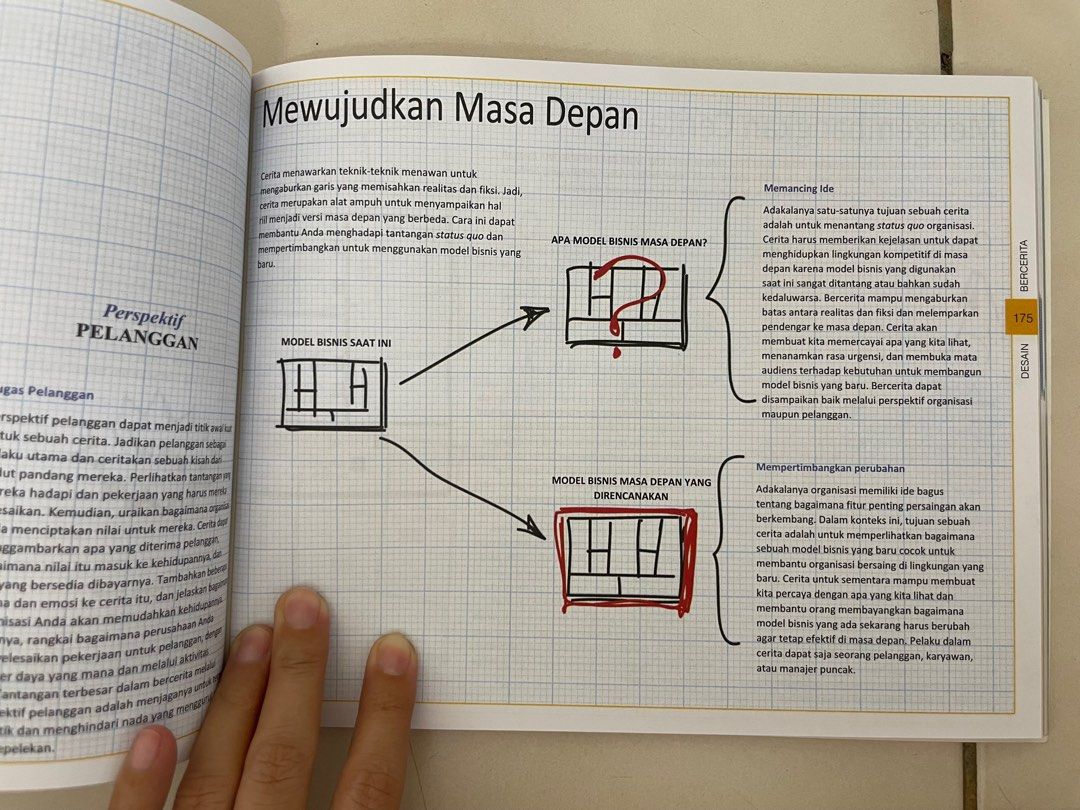 Perspektif
PELANGGAN
Pelanggan
perspektif pelanggan dapat menjadi titik awal
sebuah cerita. Jadikan pelanggan sebagai
utama dan ceritakan sebuah kisah dari
pandang mereka. Perlihatkan tantangan yang
hadapi dan pekerjaan yang harus mereka
Kemudian, uraikan bagaimana organisasi
menciptakan nilai untuk mereka. Cerita dapat
apa yang diterima pelanggan,
nilai itu masuk ke kehidupannya, dan
yang bersedia dibayarnya. Tambahkan beberapa
dan emosi ke cerita itu, dan jelaskan bagaimana
Anda akan memudahkan kehidupannya.
rangkai bagaimana perusahaan Anda
pekerjaan untuk pelanggan, dengan
daya yang mana dan melalui aktivitas
terbesar dalam bercerita melalui
pelanggan adalah menjaganya untuk
dan menghindari nada yang
Mewujudkan Masa Depan
Cerita menawarkan teknik-teknik menawan untuk
mengaburkan garis yang memisahkan realitas dan fiksi. Jadi,
cerita merupakan alat ampuh untuk menyampaikan hal
riil menjadi versi masa depan yang berbeda. Cara ini dapat
membantu Anda menghadapi tantangan status quo dan
mempertimbangkan untuk menggunakan model bisnis yang
baru.
MODEL BISNIS SAAT INI
APA MODEL BISNIS MASA DEPAN?
MODEL BISNIS MASA DEPAN YANG
DIRENCANAKAN
Memancing Ide
Adakalanya satu-satunya tujuan sebuah cerita
adalah untuk menantang status quo organisasi.
Cerita harus memberikan kejelasan untuk dapat
menghidupkan lingkungan kompetitif di masa
depan karena model bisnis yang digunakan
saat ini sangat ditantang atau bahkan sudah
kedaluwarsa. Bercerita mampu mengaburkan
batas antara realitas dan fiksi dan melemparkan
pendengar ke masa depan. Cerita akan
membuat kita memercayai apa yang kita lihat,
menanamkan rasa urgensi, dan membuka mata
audiens terhadap kebutuhan untuk membangun
model bisnis yang baru. Bercerita dapat
disampaikan baik melalui perspektif organisasi
maupun pelanggan.
Mempertimbangkan perubahan
Adakalanya organisasi memiliki ide bagus
tentang bagaimana fitur penting persaingan akan
berkembang. Dalam konteks ini, tujuan sebuah
cerita adalah untuk memperlihatkan bagaimana
sebuah model bisnis yang baru cocok untuk
membantu organisasi bersaing di lingkungan yang
baru. Cerita untuk sementara mampu membuat
kita percaya dengan apa yang kita lihat dan
membantu orang membayangkan bagaimana
model bisnis yang ada sekarang harus berubah
agar tetap efektif di masa depan. Pelaku dalam
cerita dapat saja seorang pelanggan, karyawan,
atau manajer puncak.
BERCERITA
175
DESAIN